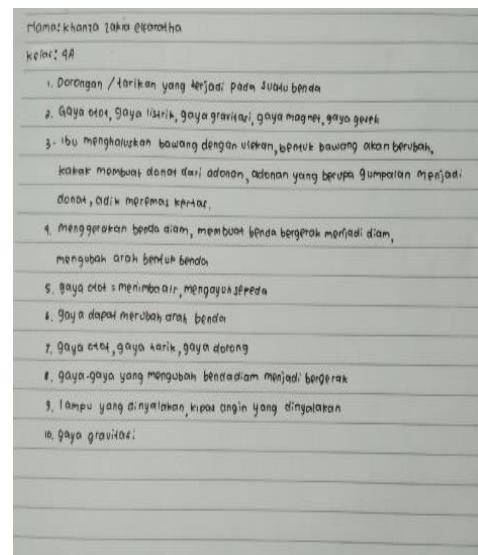 Nama: khanza zahra elfarotha
Kelas: 4A
1. Dorongan / tarikan yang terjadi pada suatu benda
2. Gaya otot, gaya listrik, gaya gravitasi, gaya magnet, gaya gesek
3. Ibu menghaluskan bawang dengan ulekan, bentuk bawang akan berubah,
kakak membuat donat dari adonan, adonan yang berupa gumpalan menjadi
donat, adik meremas kertas.
4. menggerakan benda diam, membuat benda bergerak menjadi diam,
mengubah arah bentuk benda
5. gaya otot = menimba air, mengayuh sepeda
6. gaya dapat merubah arah benda
7. gaya otot, gaya tarik, gaya dorong
8. gaya-gaya yang mengubah benda diam menjadi bergerak
9. lampu yang dinyalakan, kipas angin yang dinyalakan
10. gaya gravitasi